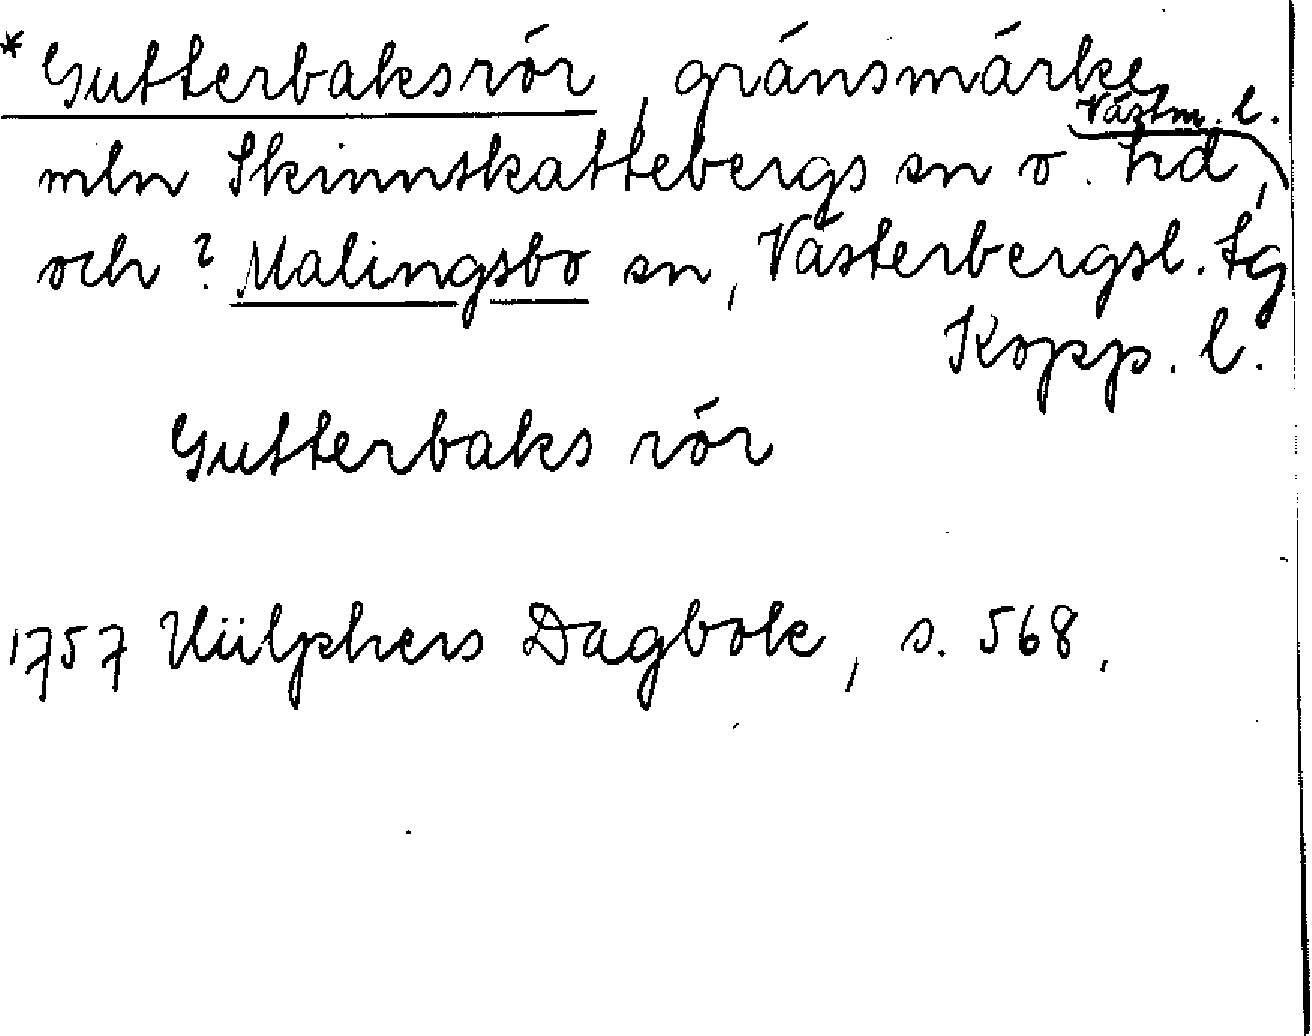 *Gutterbaksrör, gränsmärke
Västm. l.
mln Skinnskattebergs sn o. hd,
och ? Malingsbo sn, Västerbergsl. tg
Kopp. l.
Gutterbaks rör
1757 Hülphers Dagbok, s. 568.